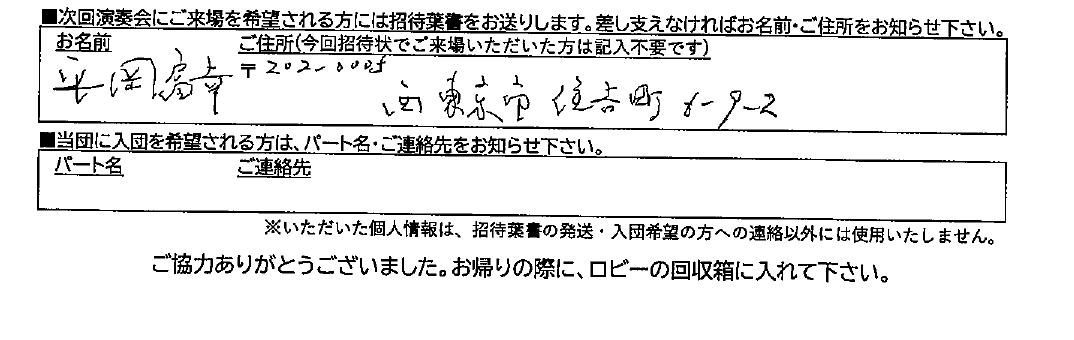 ■次回演奏会にご来場を希望される方には招待葉書をお送りします。差し支えなければお名前・ご住所をお知らせ下さい。
お名前 ご住所(今回招待状でご来場いただいた方は記入不要です)
平岡 〒202-0005
西東京市 住吉町 6-9-2
■当団に入団を希望される方は、パート名・ご連絡先をお知らせ下さい。
パート名 ご連絡先
※いただいた個人情報は、招待葉書の発送・入団希望の方への連絡以外には使用いたしません。
ご協力ありがとうございました。お帰りの際に、ロビーの回収箱に入れて下さい。